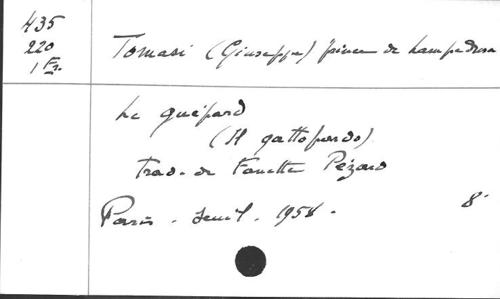 435
220
1 Fr.
Tomasi (Giuseppe) prince de Lampedusa
Le guépard
(Il gattopardo)
Trad. de Fanette Pézard
Paris. Seuil. 1958.
8°